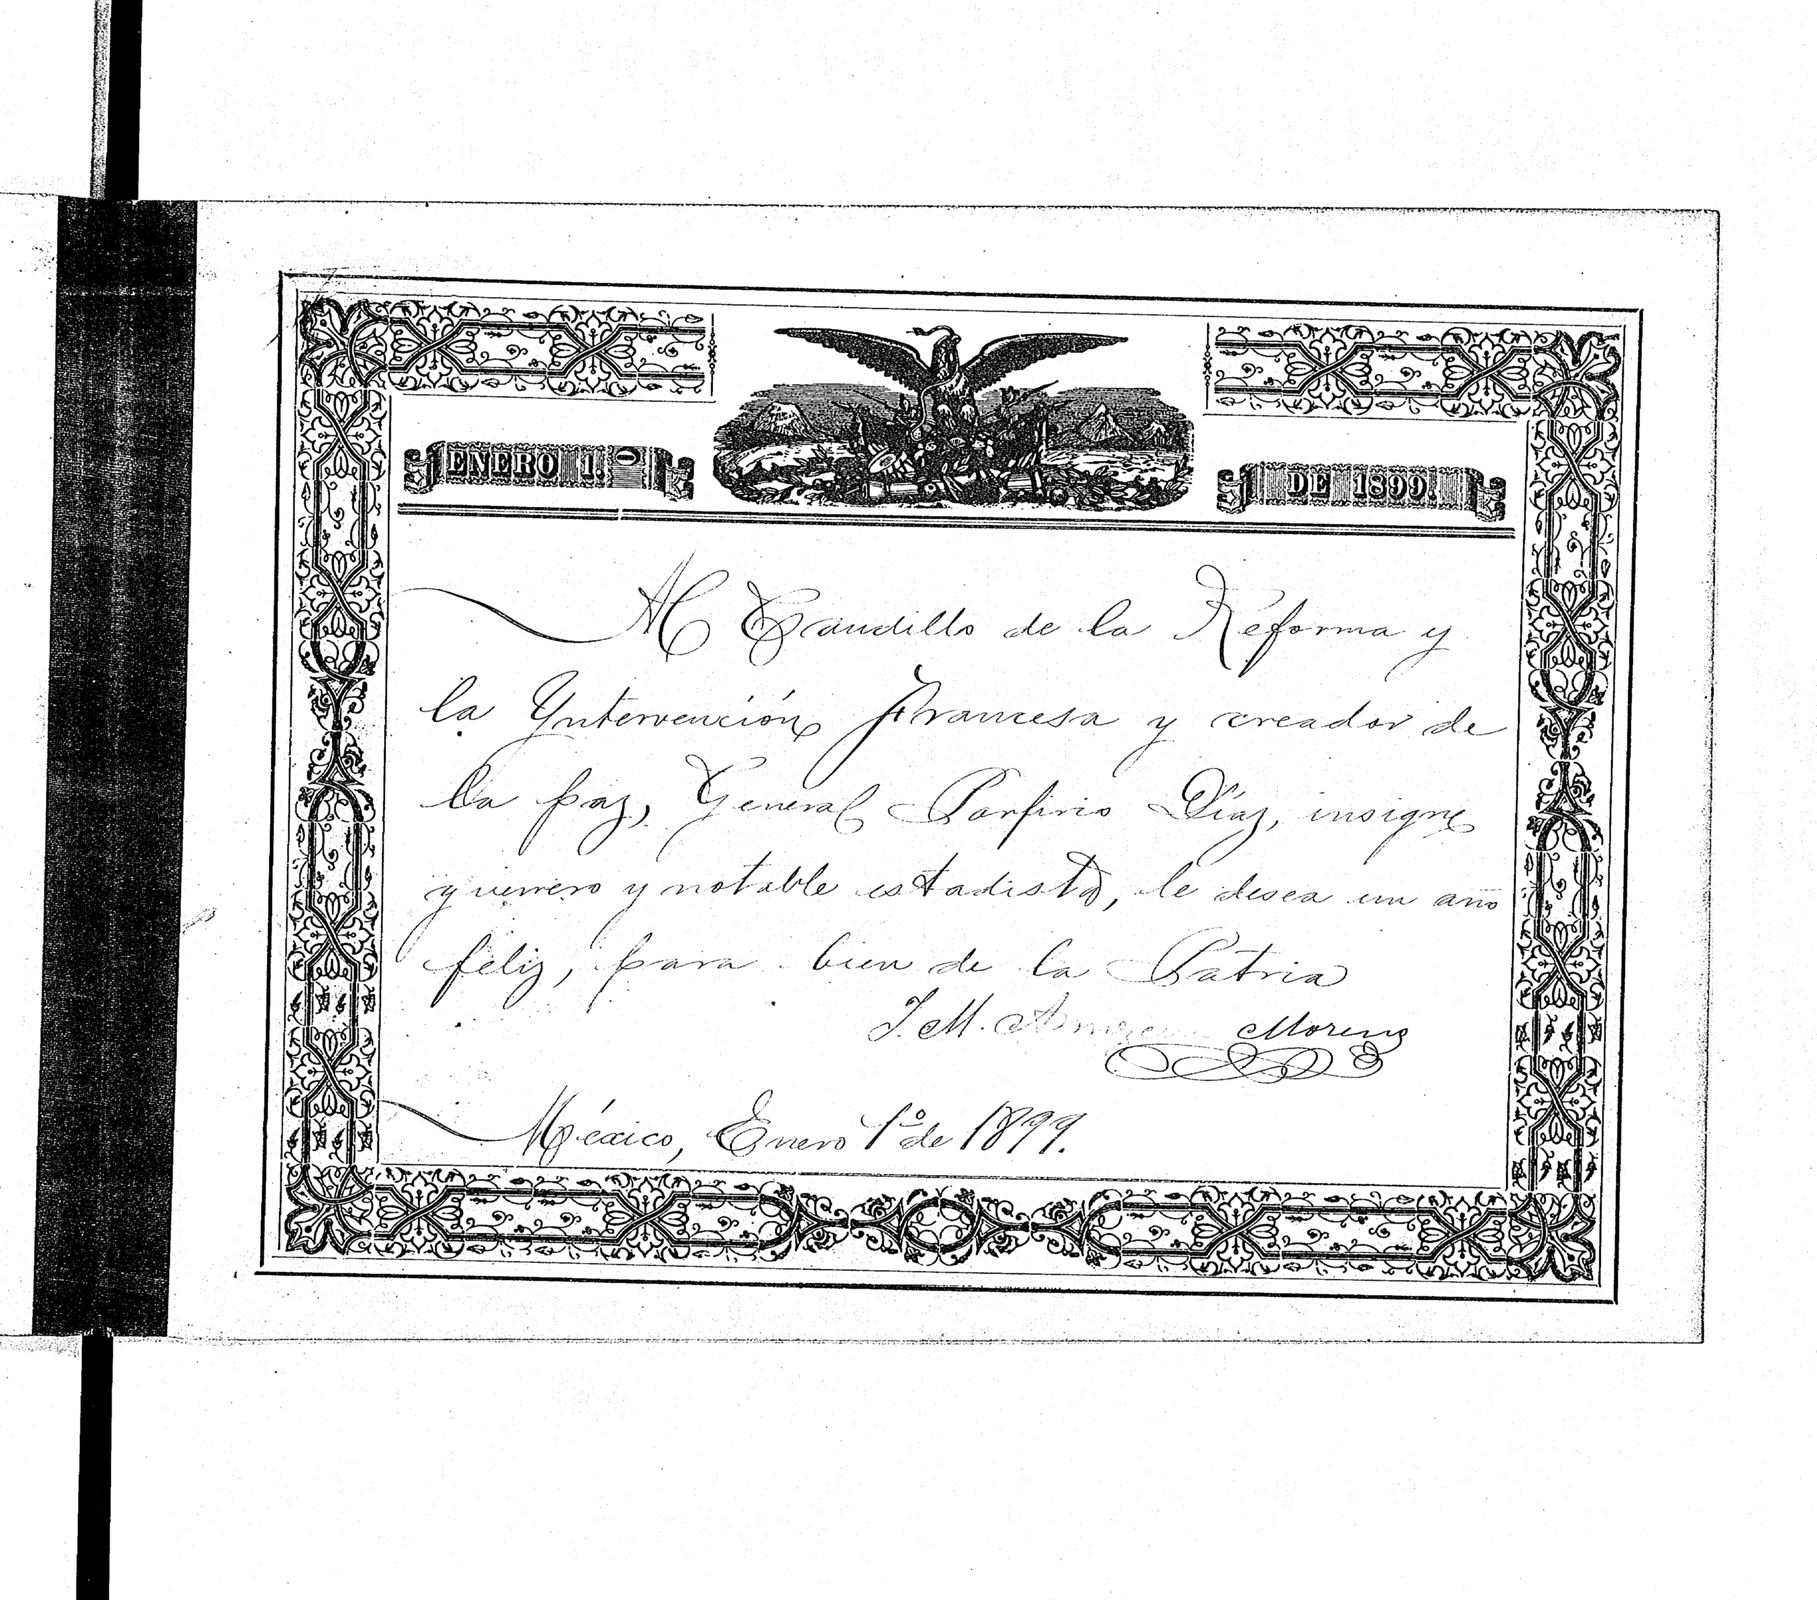 ENERO 1.º
DE 1899.
Al Caudillo de la Reforma y
la Yntervención Francesa y creador de
la paz, General Porfirio Díaz, insigne
guerrero y notable estadista, le desea un año
feliz, para bien de la Patria
J. M. Moreno
México, Enero 1º de 1899.